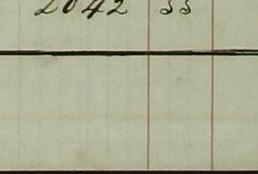 2042 33